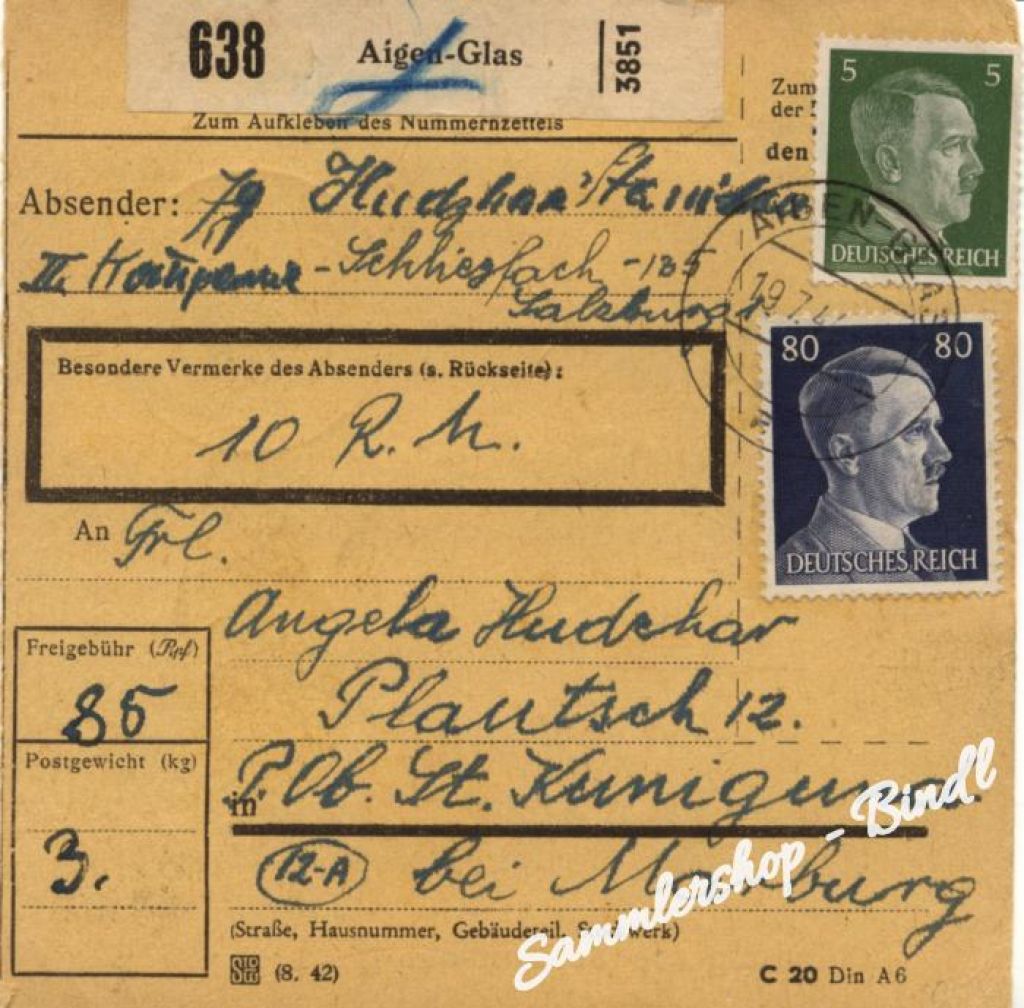 638 Aigen-Glas 3851
Zum Aufkleben des Nummernzettels
Zum
der
den
5 5
DEUTSCHES REICH
Absender: Jg Hudzhar
II. - Schliesfach - 185
Salzburg 1
AIGEN-GLAS
19.7.4
80 80
DEUTSCHES REICH
Besondere Vermerke des Absenders (s. Rückseite):
10 R. M.
An Frl.
Angela Hudzhar
Plautsch 12.
in P. Ob. St. Kunigund
12-A bei Marburg
Freigebühr (Rpf)
85
Postgewicht (kg)
3.
(Straße, Hausnummer, Gebäudeteil, Stockwerk)
(8. 42)
C 20 Din A6
Sammlershop - Bindl